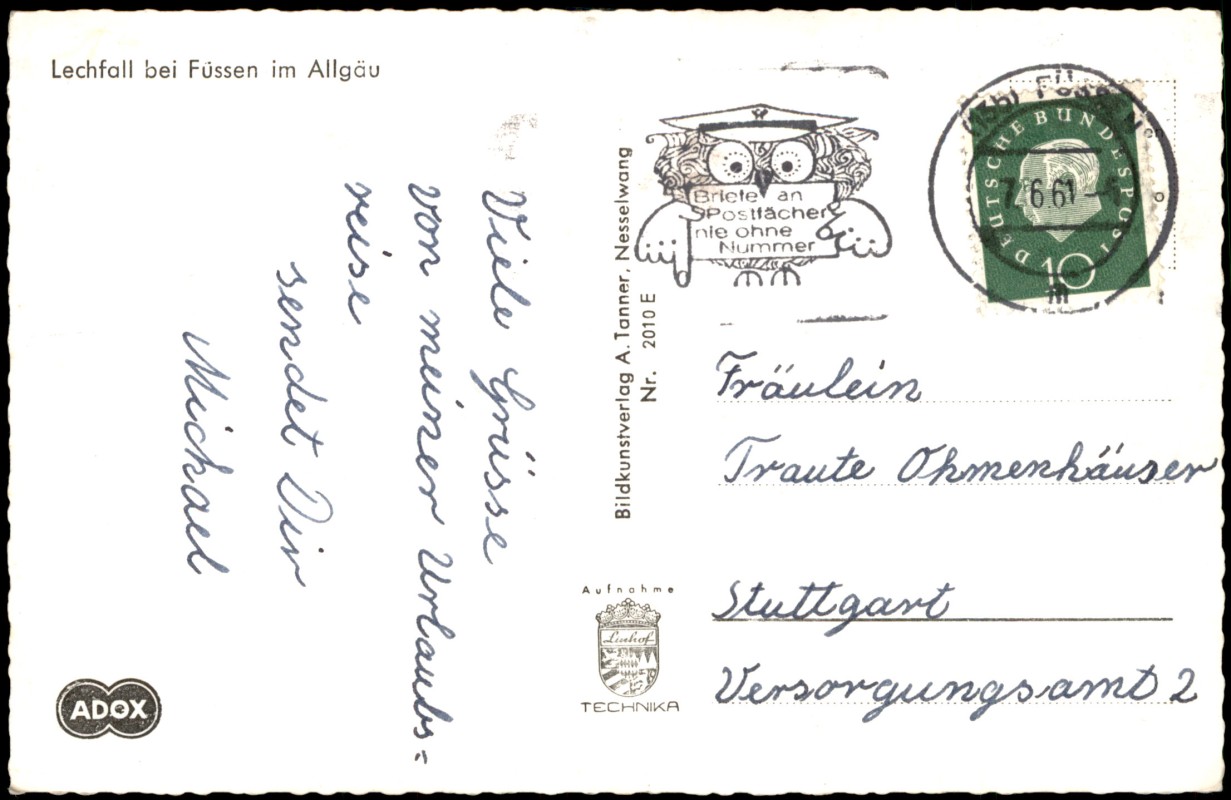 Lechfall bei Füssen im Allgäu
Viele Grüsse
von meiner Urlaubs=
reise
sendet Dir
Michael
ADOX
Bildkunstverlag A. Tanner, Nesselwang
Nr. 2010 E
Aufnahme
Linhof
TECHNIKA
Briefe an
Postfächer
nie ohne
Nummer
DEUTSCHE BUNDESPOST
10
7.6.61
m
Fräulein
Traute Ohmenhäuser
Stuttgart
Versorgungsamt 2